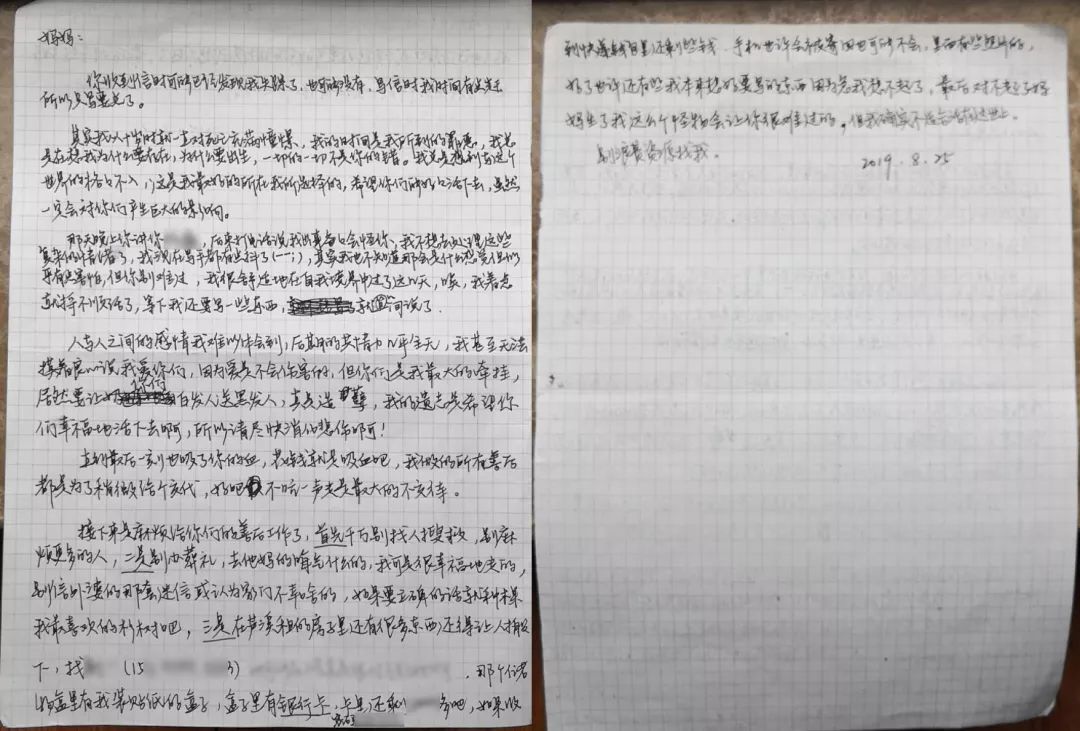 妈妈：
你收到信时可能已经发现我失踪了，也可能没有，写信时我时间有
所以只写要点了。
其实我从十岁时就一直对死亡充满憧憬，我的时间是我所剩的罪恶，我总
是在想我为什么要存在，为什么要出生，一切的一切不是你的错。我总是想到去这个
世界的格格不入，这是我最好的所在我所选择的，希望你们能好好活下去，虽然
一定会对你们产生巨大的影响。
那天晚上你讲你，后来打电话说我出事爸爸会怪你，我不想去处理这些
复杂的情绪了，我现在写字都有些抖了，其实我也不知道那会是什么感觉但似
乎有点害怕，但你别难过，我很舒适地在自我境界中过了这几天，唉，我着急
等下我还要写一些东西，说了.
人与人之间的感情我难以体会到，后期的共情力几乎全无，我甚至无法
摸着良心说我爱你们，因为爱是不会伤害的，但你们是我最大的牵挂，
居然要让你们白发人送黑发人，真是造孽，我的遗志是希望你
们幸福地活下去啊，所以请尽快消化悲伤啊！
直到最后一刻也吸了你的血，花钱就是吸血吧，我做的所有善后
都是为了稍微给个交代，好吧不吭一声走是最大的不交待。
接下来是麻烦给你们的善后工作了，首先千万别找人搜救，别麻
烦更多的人，二是别办葬礼，去他妈的晦气什么的，我可是很幸福地走的，
别信外婆的那套迷信或认为家门不幸啥的，如果要立碑的话就种棵
我最喜欢的杉树吧，三是在租的房子里还有很多东西还得让人搬
下，找（15 3），那个储
物盒里有我装贴纸的盒子，盒子里有银行卡，卡里还剩多吧，如果收
到快递钱包里还剩些钱，手机也许会被寄回也可能不会，里面有些照片的，
好了也许还有些我本来想好要写的东西因为急我想不起了，最后对不起了妈
妈生了我这么个怪物会让你很难过的，但我确实不适合活在这世上。
别浪费资源找我。
2019.8.25